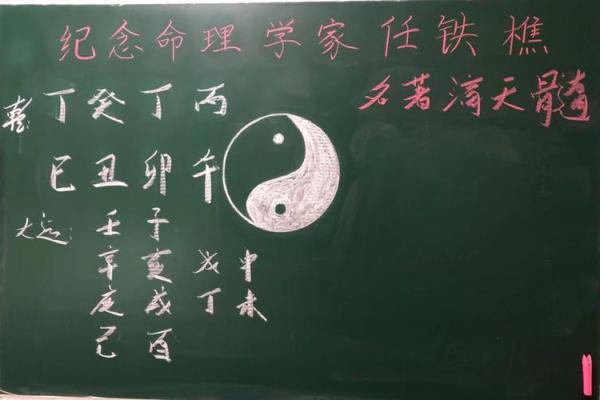 纪念命理学家任铁樵
名著滴天髓
丁癸丁丙
巳丑卯午
大运:
壬子
辛亥 戊申
庚戌 丁未
己酉